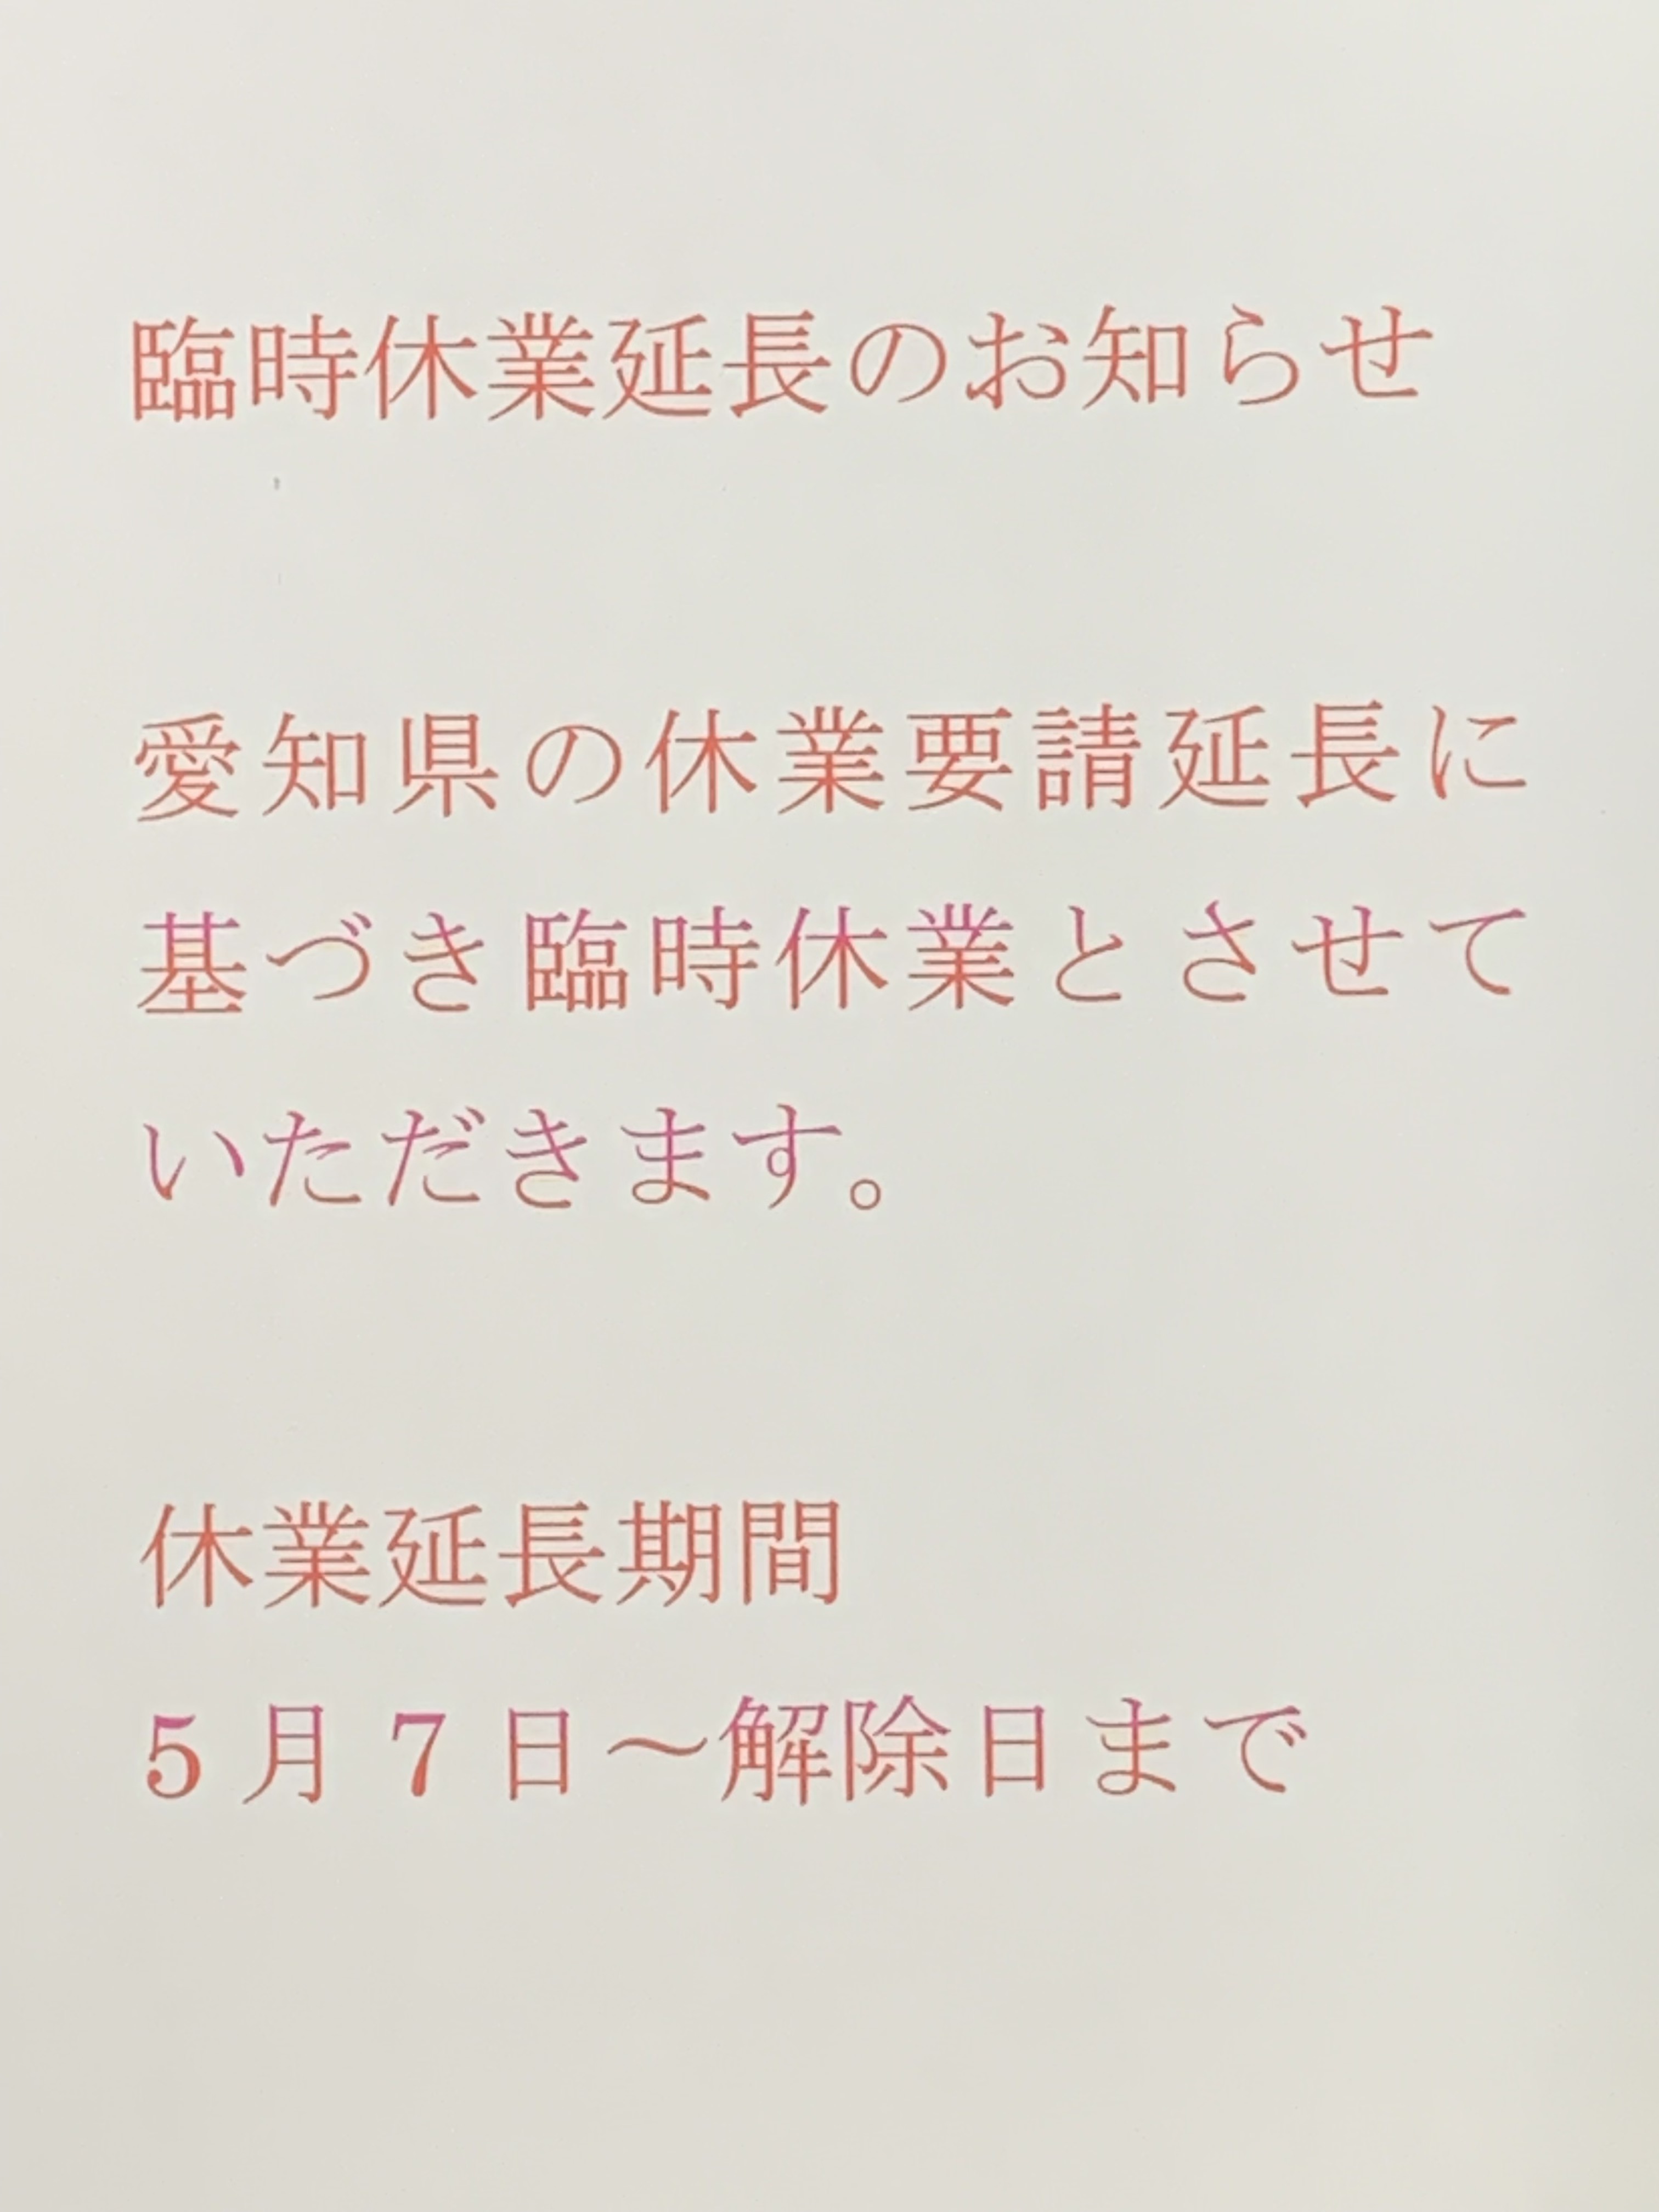 臨時休業延長のお知らせ
愛知県の休業要請延長に
基づき臨時休業とさせて
いただきます。
休業延長期間
5月7日～解除日まで